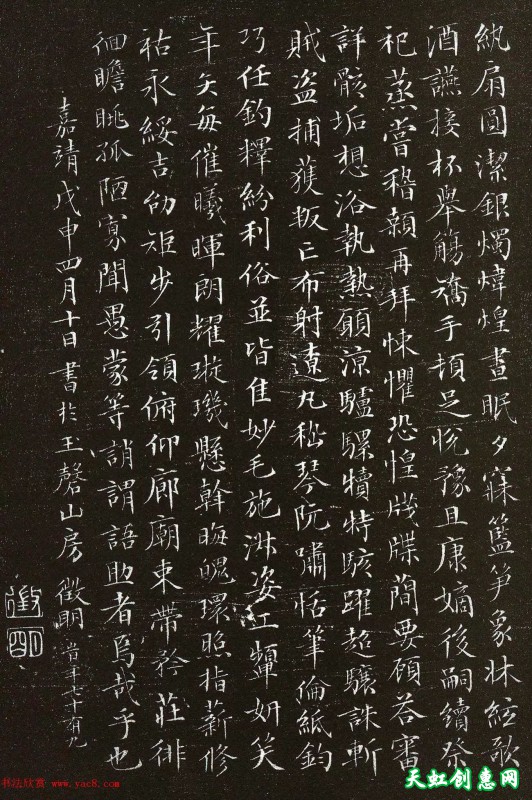 紈扇圓潔銀燭煒煌晝眠夕寐籃笋象牀絃歌
酒讌接杯舉觴矯手頓足悅豫且康嫡後嗣續祭
祀蒸嘗稽顙再拜悚懼恐惶牋牒簡要顧荅審
詳骸垢想浴執熱願涼驢騾犢特駭躍超驤誅斬
賊盗捕獲叛亡布射遼丸嵇琴阮嘯恬筆倫紙鈞
巧任釣釋紛利俗並皆佳妙毛施淑姿工顰妍笑
年矢每催曦暉朗耀璇璣懸斡晦魄環照指薪修
祜永綏吉劭矩步引領俯仰廊廟束帶矜莊徘
徊瞻眺孤陋寡聞愚蒙等誚謂語助者焉哉乎也
嘉靖戊申四月十日書於玉磬山房 徵明 旹年七十有九
徵明
书法欣赏 www.yac8.com
天虹创惠网